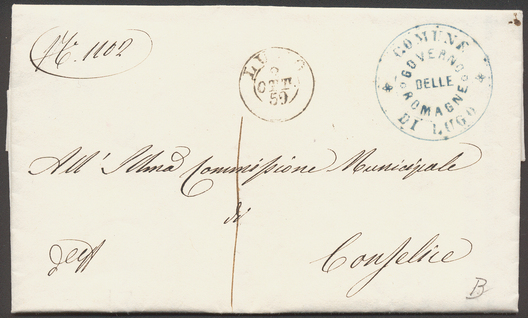 N. 1102
LUGO
2
OTT.
59
COMUNE
GOVERNO
DELLE
ROMAGNE
DI LUGO
All' Illma Commissione Municipale
di
Conselice
B